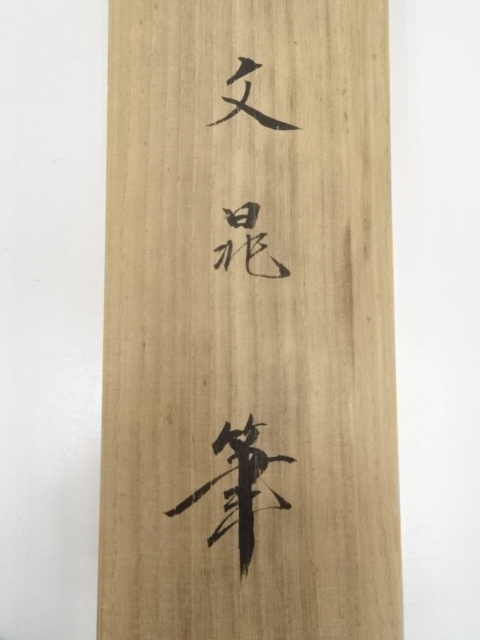 文晁筆